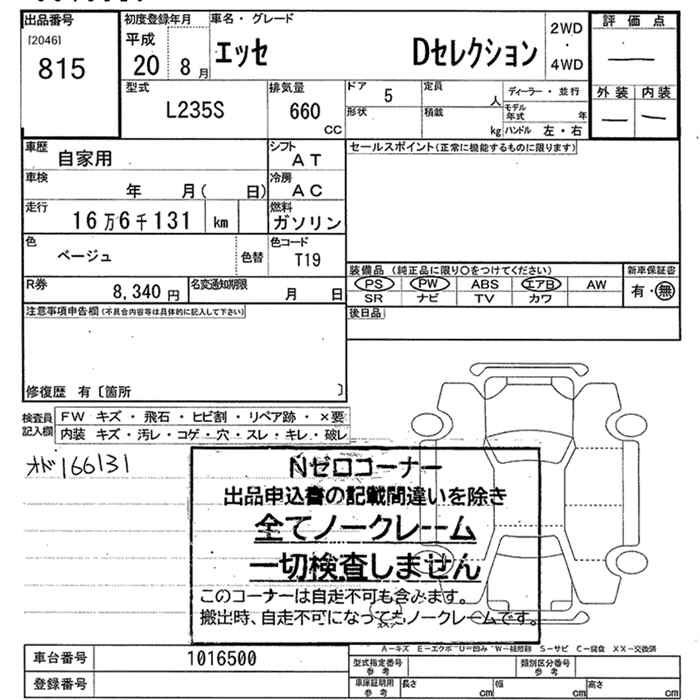 出品番号
[2046]
815
初度登録年月
平成
20 8月
車名・グレード
エッセ Dセレクション
2WD
・
4WD
評価点
外装 内装
型式
L235S
排気量
660
CC
ドア
5
形状
定員
人
積載
kg
ディーラー・並行
モデル年式 年
ハンドル 左・右
車歴
自家用
シフト
AT
車検
年 月( 日)
冷房
AC
走行
16万6千131 km
燃料
ガソリン
色
ベージュ
色替
色コード
T19
R券
8,340 円
名変通知期限
月 日
セールスポイント(正常に機能するものに限ります)
装備品 (純正品に限り○をつけてください)
新車保証書
PS PW ABS エアB AW
SR ナビ TV カワ
有・無
後日品
注意事項申告欄(不具合内容等は具体的に記入して下さい)
修復歴 有〔箇所 〕
検査員
記入欄
FW キズ・飛石・ヒビ割・リペア跡・×要
内装 キズ・汚レ・コゲ・穴・スレ・キレ・破レ
オド166131
Nゼロコーナー
出品申込書の記載間違いを除き
全てノークレーム
一切検査しません
このコーナーは自走不可も含みます。
搬出時、自走不可になってもノークレームです。
A-キズ E-エクボ U-凹み W-補修跡 S-サビ C-腐食 XX-交換済
車台番号
1016500
登録番号
型式指定番号
参考
類別区分番号
参考
車庫証明用
参考
長さ cm
幅 cm
高さ cm